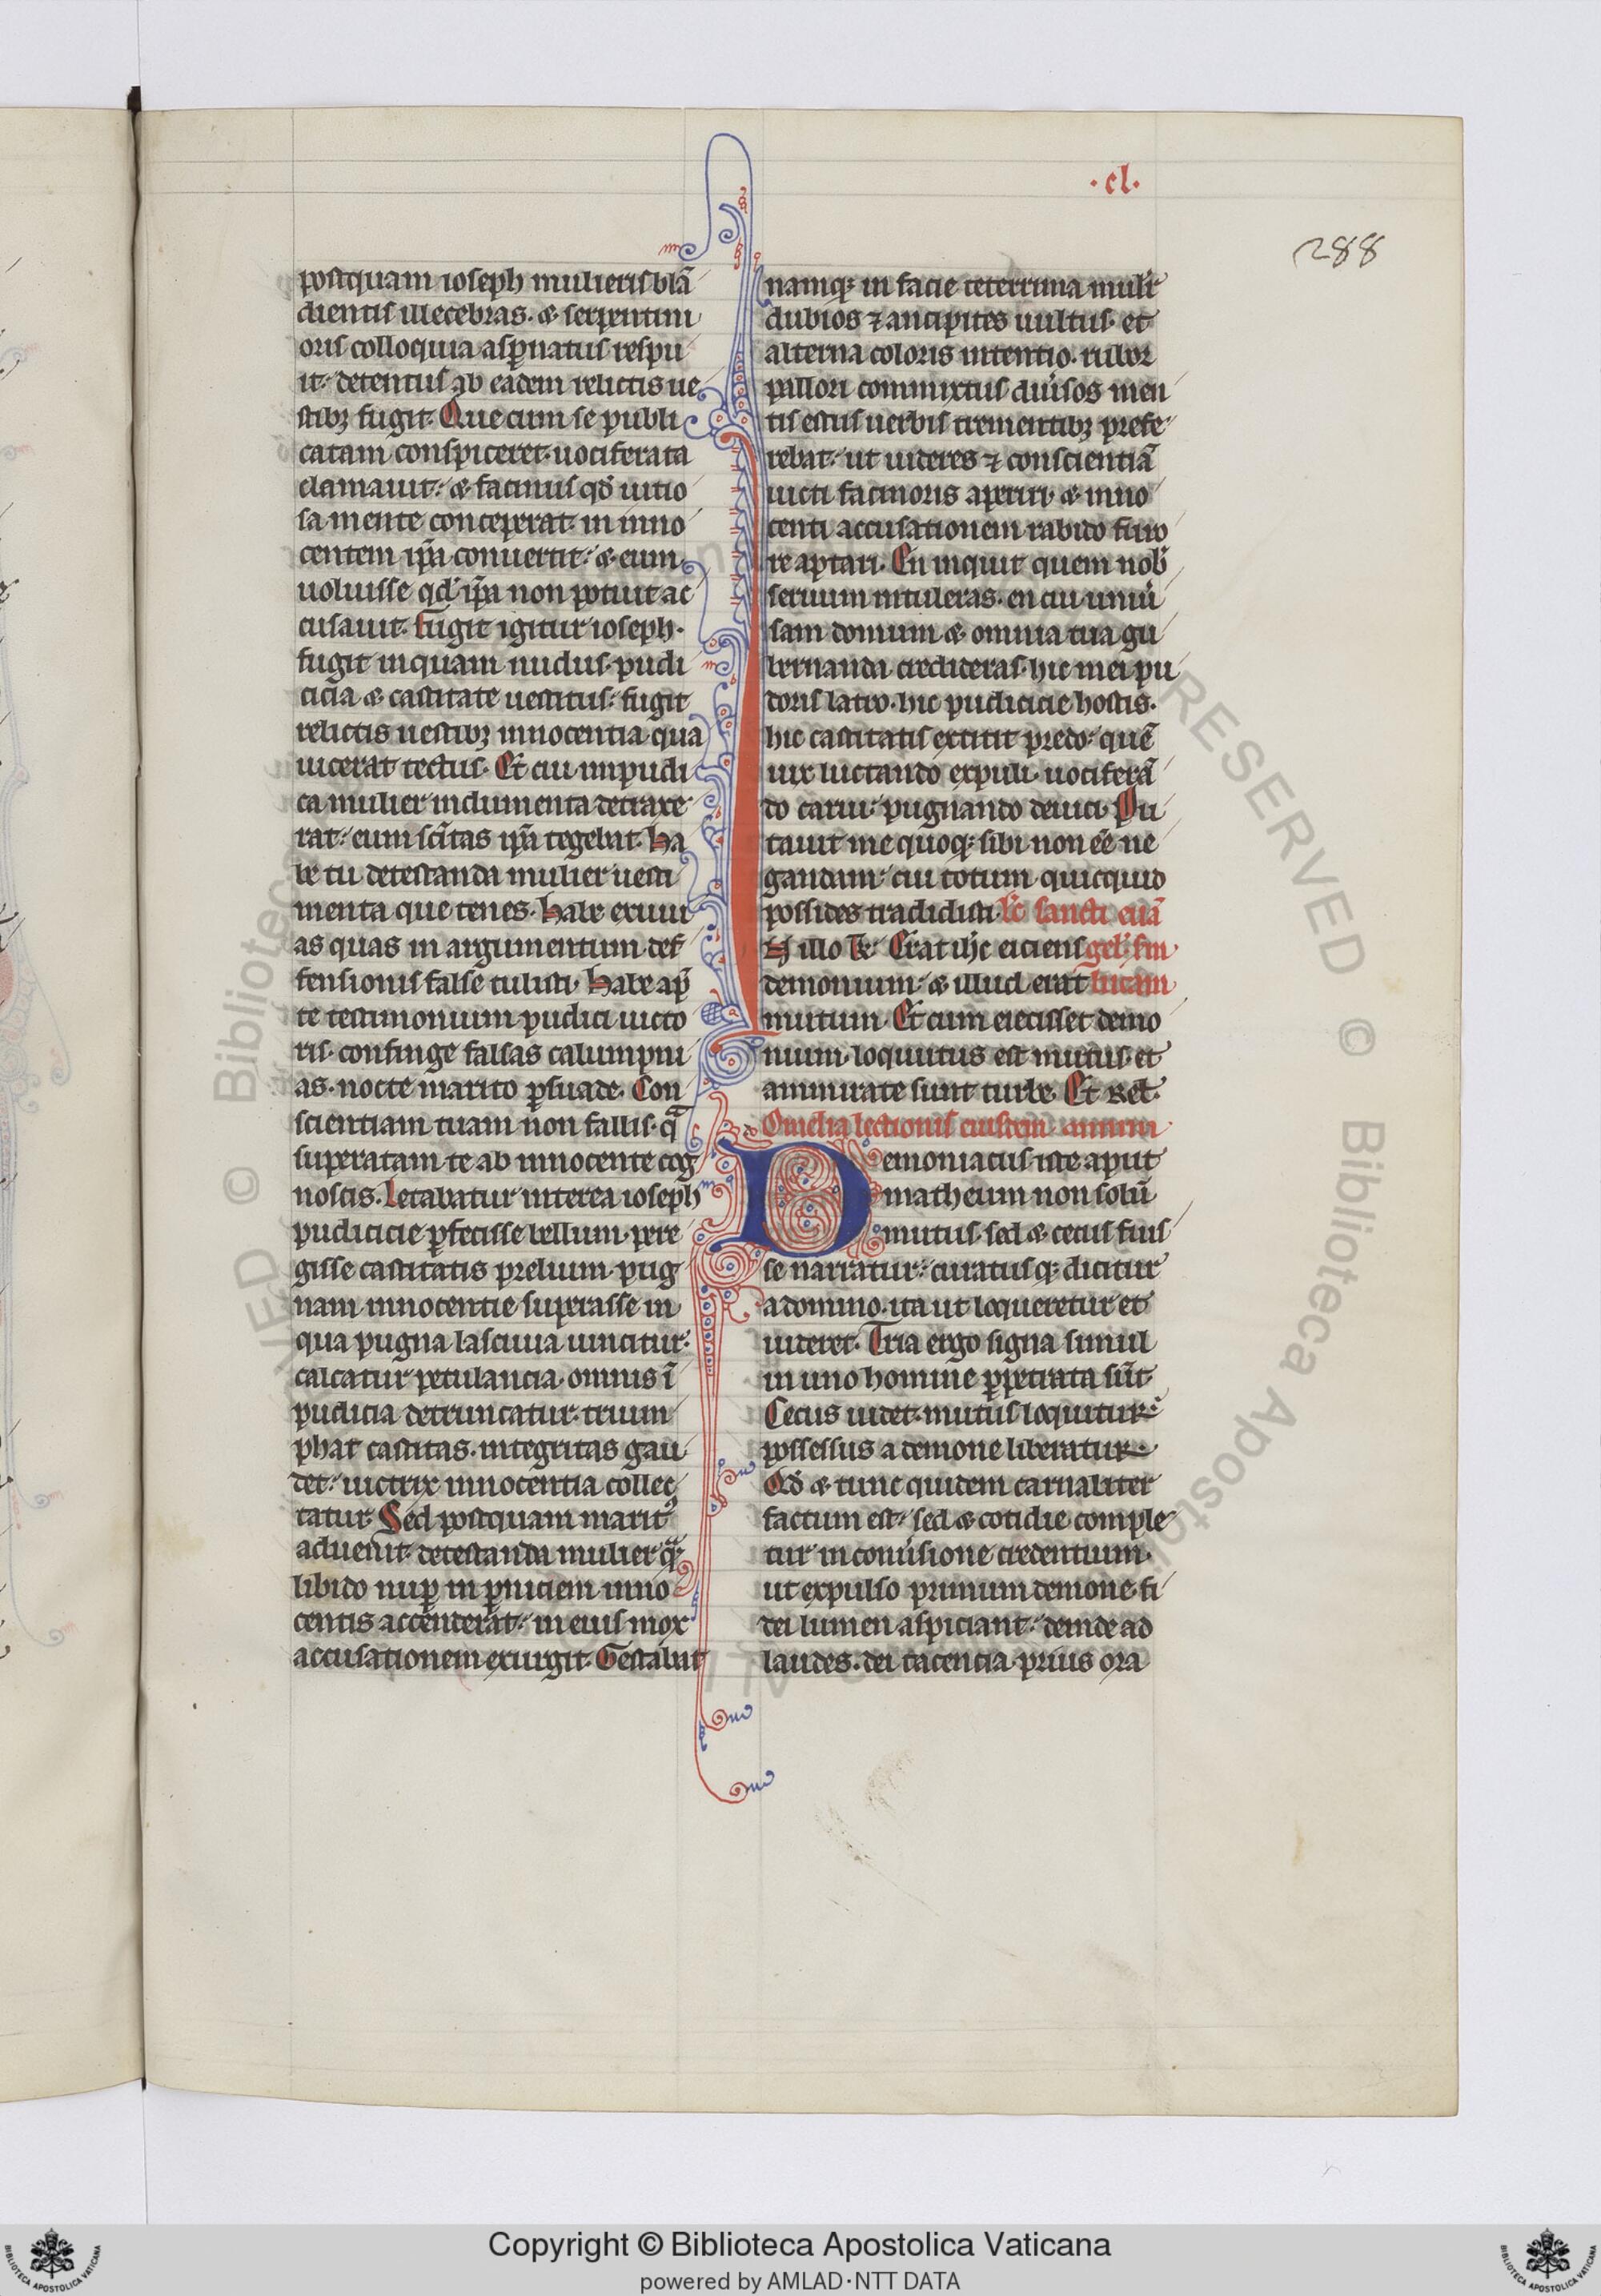 ·cl·
288
postquam ioseph mulieris blā
dientis illecebras· & serpentini
oris colloquia asp̲natus respu
it· detentus ab eadem relictis ue
stibꝫ fugit· Que cum se publi
catam conspiceret· uociferata
clamauit· & facinus qd̄ uitio
sa mente conceperat· in inno
centem ip̄a conuertit· & eum
uoluisse qd̄ ip̄a non potuit ac
cusauit· fugit igitur ioseph·
fugit inquam nudus· pudi
cicia & castitate uestitus· fugit
relictis uestibꝫ innocentia qua
uicerat tectus· Et cui inpudi
ca mulier indumenta detraxe
rat· eum sc̄itas ip̄a tegebat· ha
be tu detestanda mulier uesti
menta que tenes· habe exuui
as quas in argumentum def
fensionis false tulisti· habe ap̲
te testimonium pudici uicto
ris· confinge falsas calumpni
as· nocte marito ꝑsuade· Con
scientiam tuam non fallis· q̄
superatam te ab innocente cog
noscis· letabatur interea ioseph
pudicicie ꝑfecisse bellum· pere
gisse castitatis prelium· pug
nam innocentie superasse in
qua pugna lasciuia uincitur·
calcatur petulancia· omnis ī
pudicia detruncatur· trium
phat castitas· integritas gau
det· uictrix innocentia collec
tatur· Sed postquam maritꝰ
aduenit· detestanda mulier qͣ
libido nuꝑ in ꝑniciem inno
centis accenderat· in eius mox
accusationem exurgit· Gestabat
namqꝫ in facie teterrima mulier
dubios ⁊ ancipites uultus· et
alterna coloris intentio· rubor
pallori commixtus diuisos men
tis estus uerbis trementibꝫ prefe
rebat· ut uideres ⁊ conscientiā
uicti facinoris aperiri· & inno
centi accusationem rabido furo
re aptari· En inquit quem nob̄
seruum intuleras· en cui uniu̓
sam domum & omnia tua gu
bernanda credideras· hic mei pu
doris latro· hic pudicicie hostis·
hic castitatis extitit predo· quē
uix luctando expuli· uociferā
do carui· pugnando deuici· Pu
tauit me quoqꝫ sibi non ēē ne
gandam· cui totum quicquid
possides tradidisti· lc̄ sancti euā
gel̓· sm̄
lucam
In illo t̄e· Erat ih̄c eiciens
demonium· & illud erat
mutum· Et cum eiecisset demo
nium· loquutus est mutus· et
ammirate sunt turbe· Et rel̄·
Omelia lectionis eiusdem
Demoniacus iste aput
matheum non solū
mutus· sed & cecus fuis
se narratur· curatusqꝫ dicitur
a domino· ita ut loqueretur et
uideret· Tria ergo signa simul
in uno homine ꝑpetrata sūt
Cecus uidet· mutus loquitur·
possessus a demone liberatur·
Qd̄ & tunc quidem carnaliter
factum est· sed & cotidie comple
tur in conu̓sione credentium·
ut expulso primum demone· fi
dei lumen aspiciant· deinde ad
laudes· dei tacencia prius ora
Copyright © Biblioteca Apostolica Vaticana
powered by AMLAD·NTT DATA